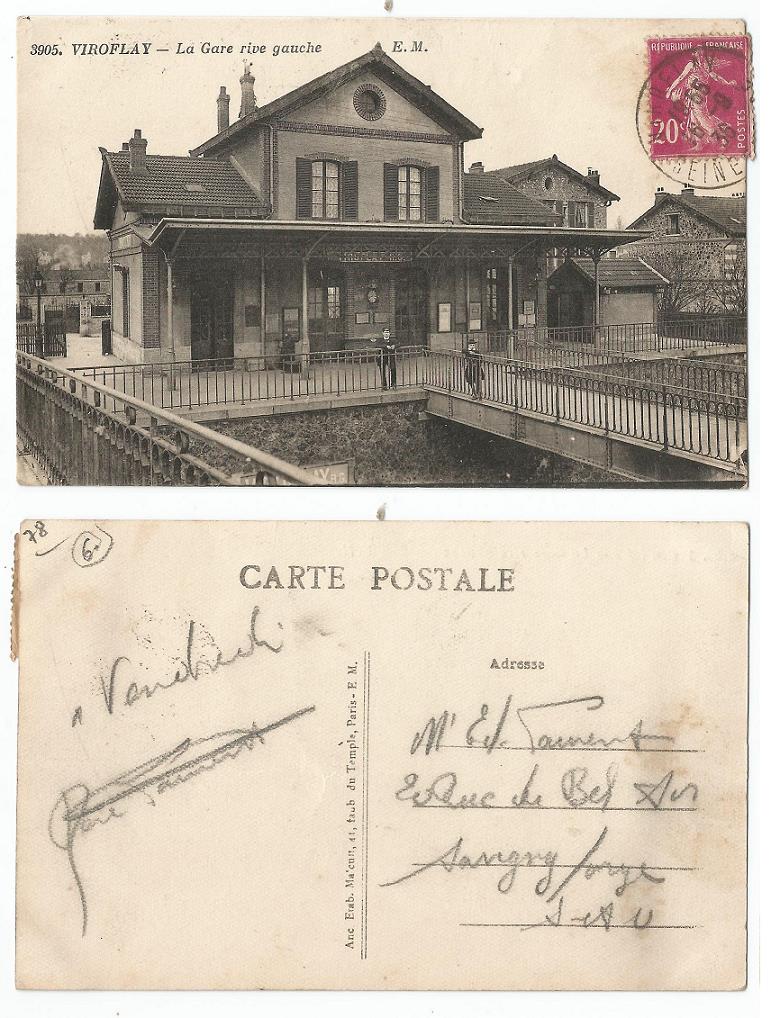 3905. VIROFLAY — La Gare rive gauche E. M.
REPUBLIQUE FRANÇAISE
20c
POSTES
SEINE
VIROFLAY R.G.
78
6.
CARTE POSTALE
à Vendredi
Adresse
Mr Ed. Laurent
Rue de Bel Air
Savigny s/orge
S-et-O
Anc Etab. Malcuit, 41, faub du Temple, Paris - E M.